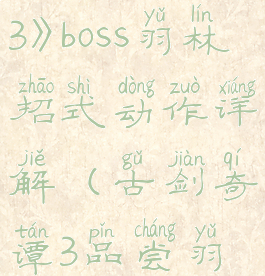 yǔ lín
3》boss羽林
zhāo shì dòng zuò xiáng
招式动作详
jiě gǔ jiàn qí
解(古剑奇
tán pǐn cháng yǔ
谭3品尝羽